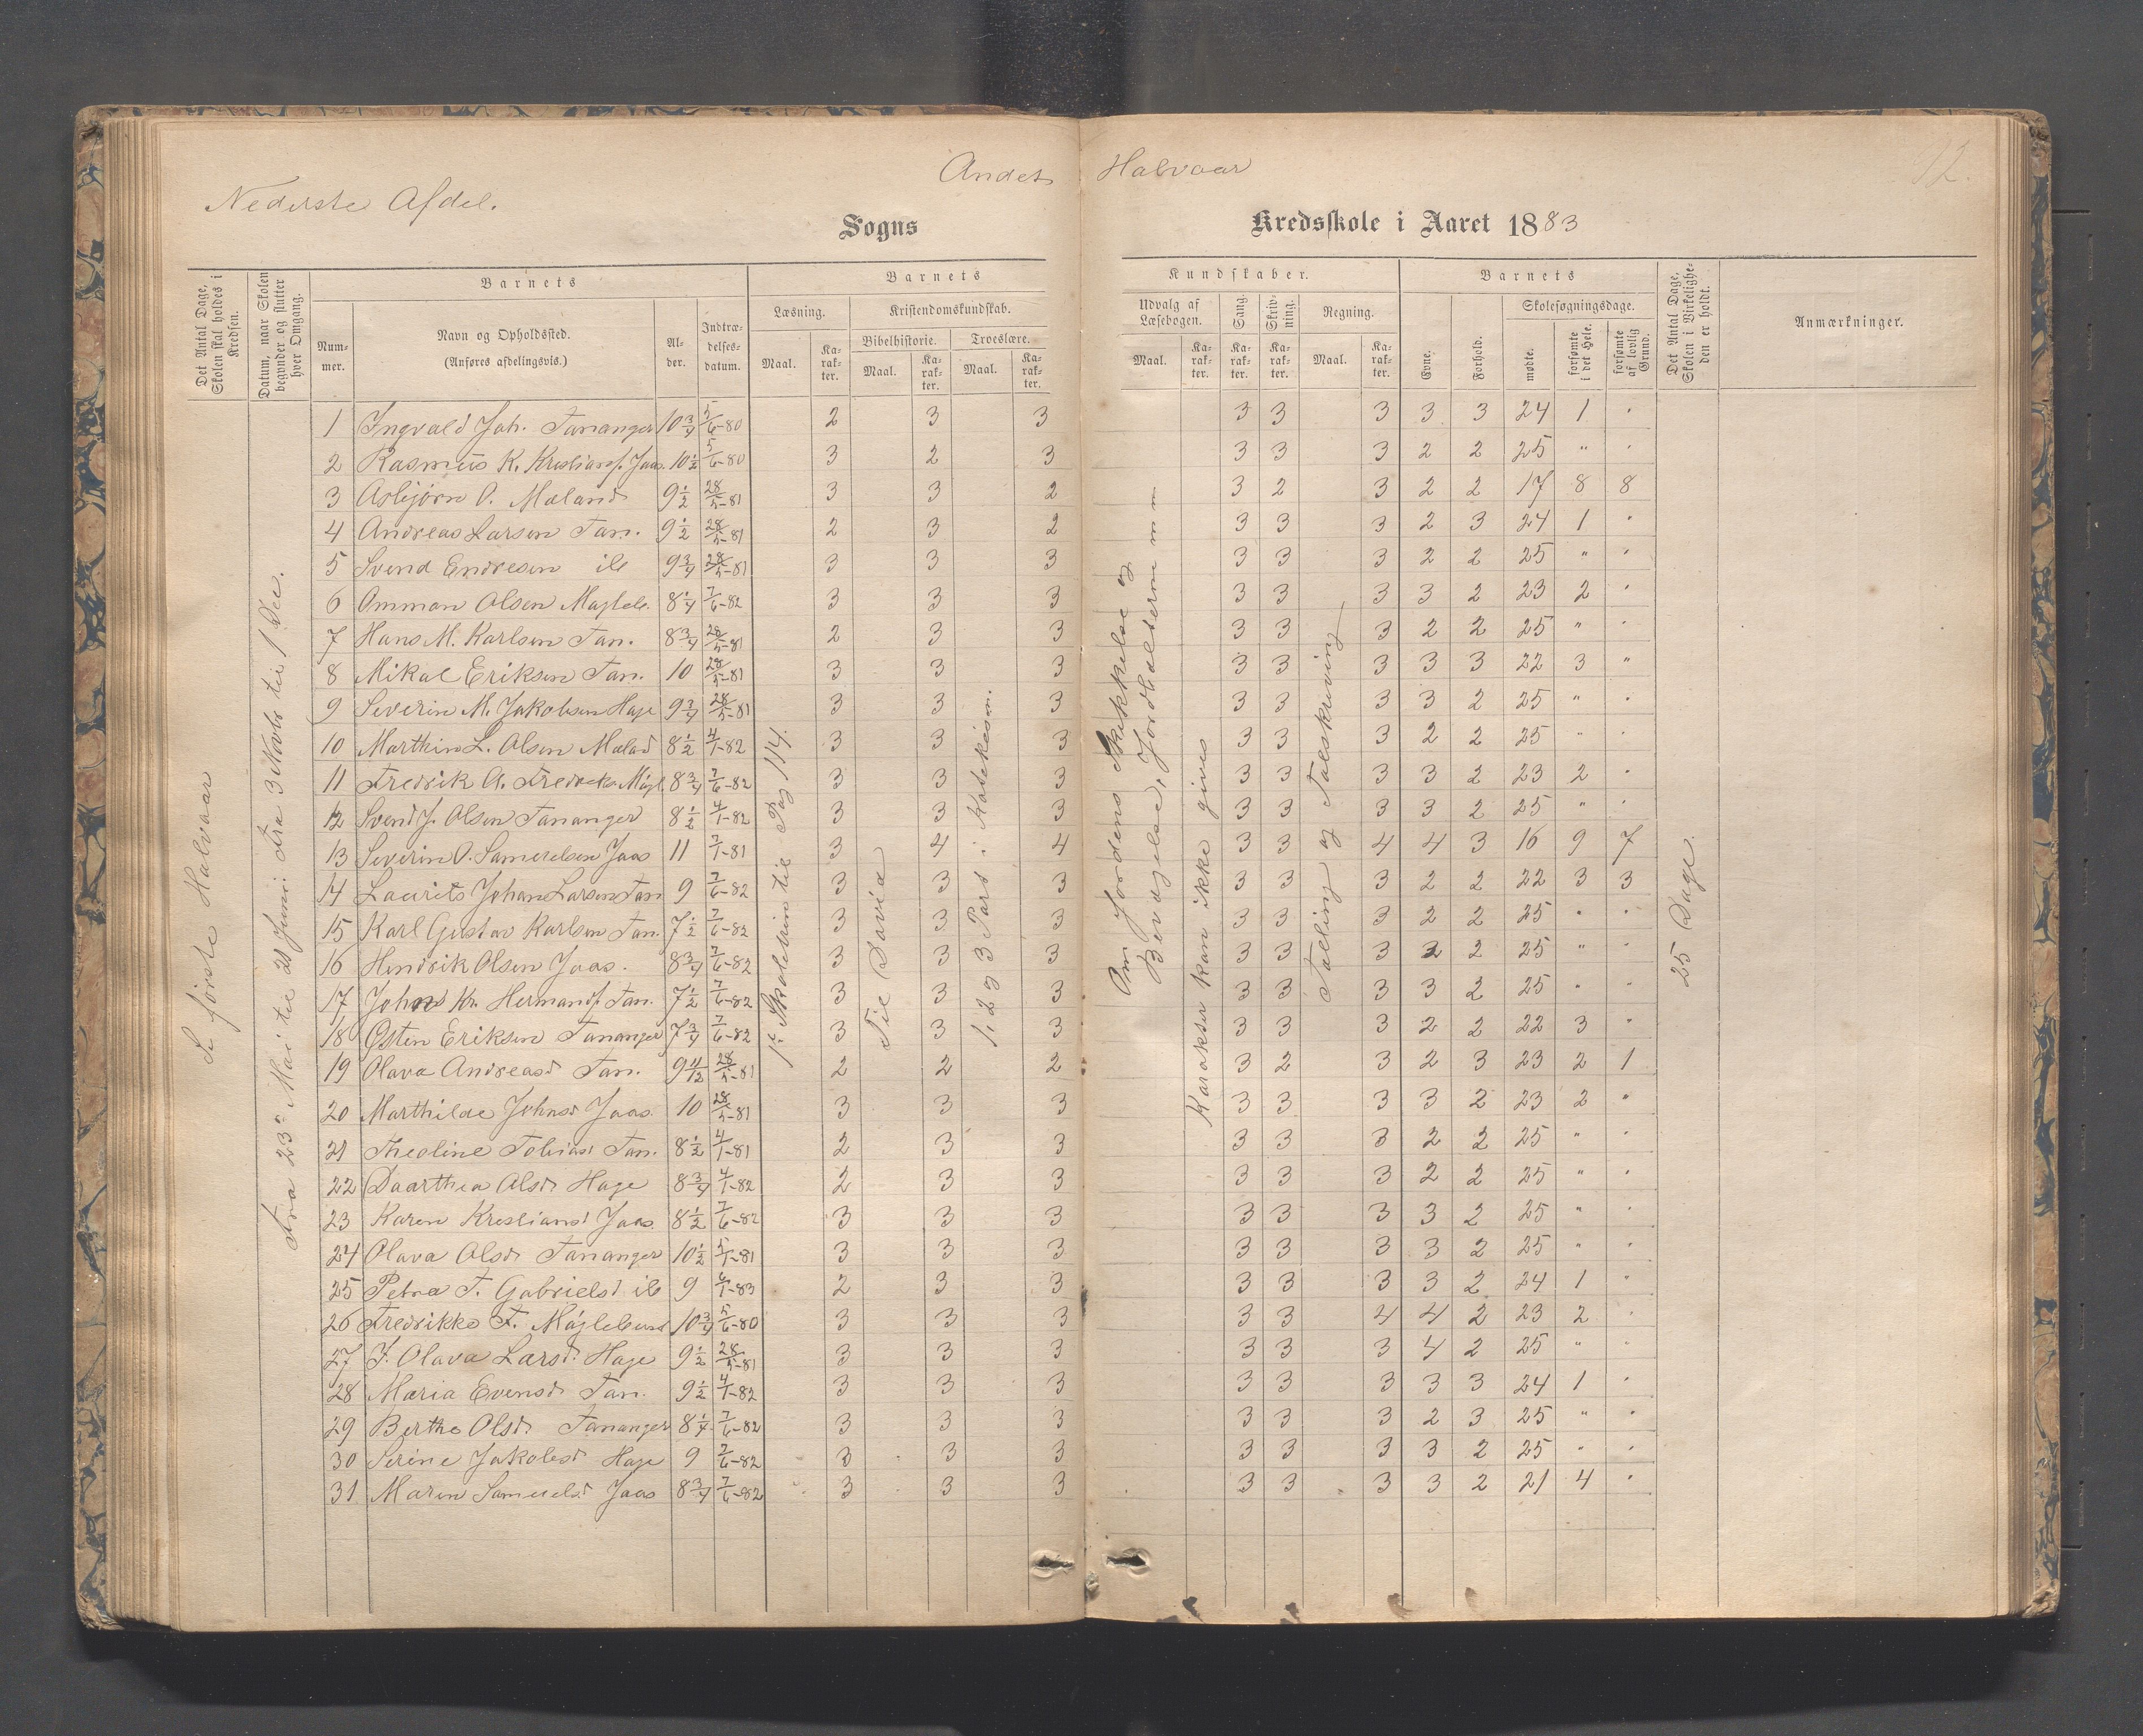 Andet Halvaar
12.
Nederste Afdel.
Sogns Kredsskole i Aaret 1883
Det Antal Dage, Skolen skal holdes i Kredsen.
Datum, naar Skolen begynder og slutter hver Omgang.
Barnets
Num-mer.
Navn og Opholdssted.
(Anføres afdelingsvis.)
Al-der.
Indtræ-delses-datum.
Barnets Kundskaber.
Læsning.
Maal. Ka-rak-ter.
Kristendomskundskab.
Bibelhistorie.
Maal. Ka-rak-ter.
Troeslære.
Maal. Ka-rak-ter.
Udvalg af Læsebogen.
Maal. Ka-rak-ter.
Sang.
Ka-rak-ter.
Skriv-ning.
Ka-rak-ter.
Regning.
Maal. Ka-rak-ter.
Barnets
Evne.
Forhold.
Skolesøgningsdage.
mødte.
forsømte i det Hele.
forsømte af lovlig Grund.
Det Antal Dage, Skolen i Virkelighe-den er holdt.
Anmærkninger.
Se første Halvaar
Fra 23de Mai til 20 Juni. Fra 3 Novbr til 1 Dec.
1ste Skoletrin til Pag 114.
Til David
1, 2 og 3 Part i Katekism.
Om Jordens Skikkelse og Bevægelse, Jordhalderne m m
Karakter kan ikke gives
Tælling og Talskrivning
25 Dage.
1 Ingvald Joh. Tananger 10 3/4 5/6-80 2 3 3 3 3 3 3 3 24 1 "
2 Rasmus K. Kristians. Jaas. 10 1/2 5/6-80 3 2 3 3 3 3 2 2 25 " "
3 Asbjørn O. Mæland 9 1/2 28/5-81 3 3 2 3 2 3 2 2 17 8 8
4 Andreas Larsen Tan. 9 1/2 28/5-81 2 3 2 3 3 3 2 3 24 1 "
5 Svend Endresen ib 9 3/4 28/5-81 3 3 3 3 3 3 2 2 25 " "
6 Omman Olsen Mægleb. 8 1/4 7/6-82 3 3 3 3 3 3 3 2 23 2 "
7 Hans M. Karlsen Tan. 8 3/4 28/5-81 2 3 3 3 3 3 2 2 25 " "
8 Mikal Eriksen Tan. 10 28/5-81 3 3 3 3 3 3 3 3 22 3 "
9 Severin M. Jakobsen Hage 9 3/4 28/5-81 3 3 3 3 3 3 3 2 25 " "
10 Marthin L. Olsen Mælad 8 1/2 4/1-82 3 3 3 3 3 3 2 2 25 " "
11 Fredrik A. Fredreks. Mægl. 8 3/4 7/6-82 3 3 3 3 3 3 3 2 23 2 "
12 Svend J. Olsen Tananger 8 1/2 4/1-82 3 3 3 3 3 3 3 2 25 " "
13 Severin O. Samuelsen Jaas 11 7/1-81 3 4 4 3 3 4 4 3 16 9 7
14 Laurits Johan Larsen Tan 9 7/6-82 3 3 3 3 3 3 2 2 22 3 3
15 Karl Gustav Karlsen Tan. 7 1/2 7/6-82 3 3 3 3 3 3 2 2 25 " "
16 Hendrik Olsen Jaas. 8 3/4 7/6-82 3 3 3 3 3 3 2 2 25 " "
17 Johns Kr. Hermans. Tan. 7 1/2 7/6-82 3 3 3 3 3 3 3 2 25 " "
18 Østen Eriksen Tananger 7 3/4 7/6-82 3 3 3 3 3 3 2 2 22 3 "
19 Olava Andreasd Tan. 9 4/12 28/5-81 2 2 2 3 2 3 2 3 23 2 1
20 Marthilde Johnsd Jaas 10 28/5-81 3 3 3 3 3 3 3 2 23 2 "
21 Theoline Tobiasd Tan. 8 1/2 4/1-81 2 3 3 3 3 3 2 2 25 " "
22 Daarthea Olsd. Hage 8 3/4 4/1-82 2 3 3 3 3 3 2 2 25 " "
23 Karen Kristiansd Jaas. 8 1/2 7/6-82 3 3 3 3 3 3 3 2 25 " "
24 Olava Olsd. Tananger 10 1/2 5/1-81 3 3 3 3 3 3 3 2 25 " "
25 Petra T. Gabrielsd ib 9 6/1-83 2 3 3 3 3 3 3 2 24 1 "
26 Fredrikke F. Mæglebund 10 3/4 5/6-80 3 3 3 3 3 4 4 2 23 2 "
27 J. Olava Larsd. Hage 9 1/2 28/5-81 3 3 3 3 3 3 4 2 25 " "
28 Maria Evensd. Tan. 9 1/2 4/1-82 3 3 3 3 3 3 3 3 24 1 "
29 Berthe Olsd. Tananger 8 1/4 7/6-82 3 3 3 3 3 3 2 3 25 " "
30 Serine Jakobsd Hage 9 7/6-82 3 3 3 3 3 3 3 2 25 " "
31 Maren Samuelsd Jaas 8 3/4 7/6-82 3 3 3 3 3 3 3 2 21 4 "